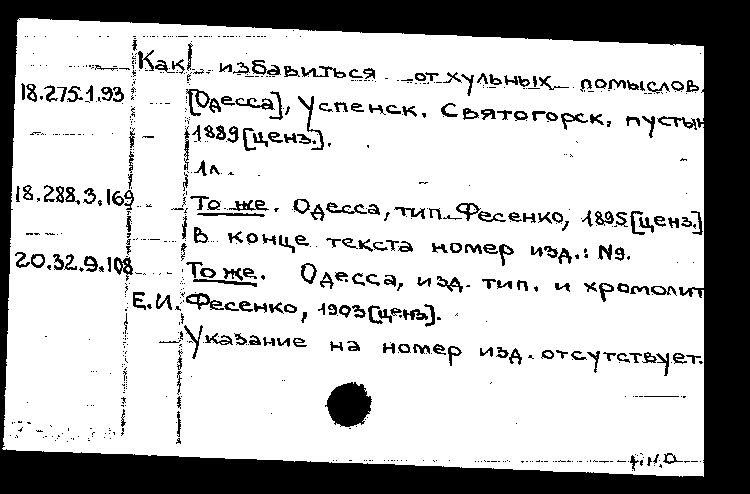 Как избавиться от хульных помыслов.
18.275.1.93 [Одесса], Успенск. Святогорск. пустын
1889 [ценз.].
1л.
18.288.3.169 То же. Одесса, тип. Фесенко, 1895 [ценз.]
В конце текста номер изд.: №9.
20.32.9.108 То же. Одесса, изд. тип. и хромолит
Е.И. Фесенко, 1903 [ценз.].
Указание на номер изд. отсутствует.